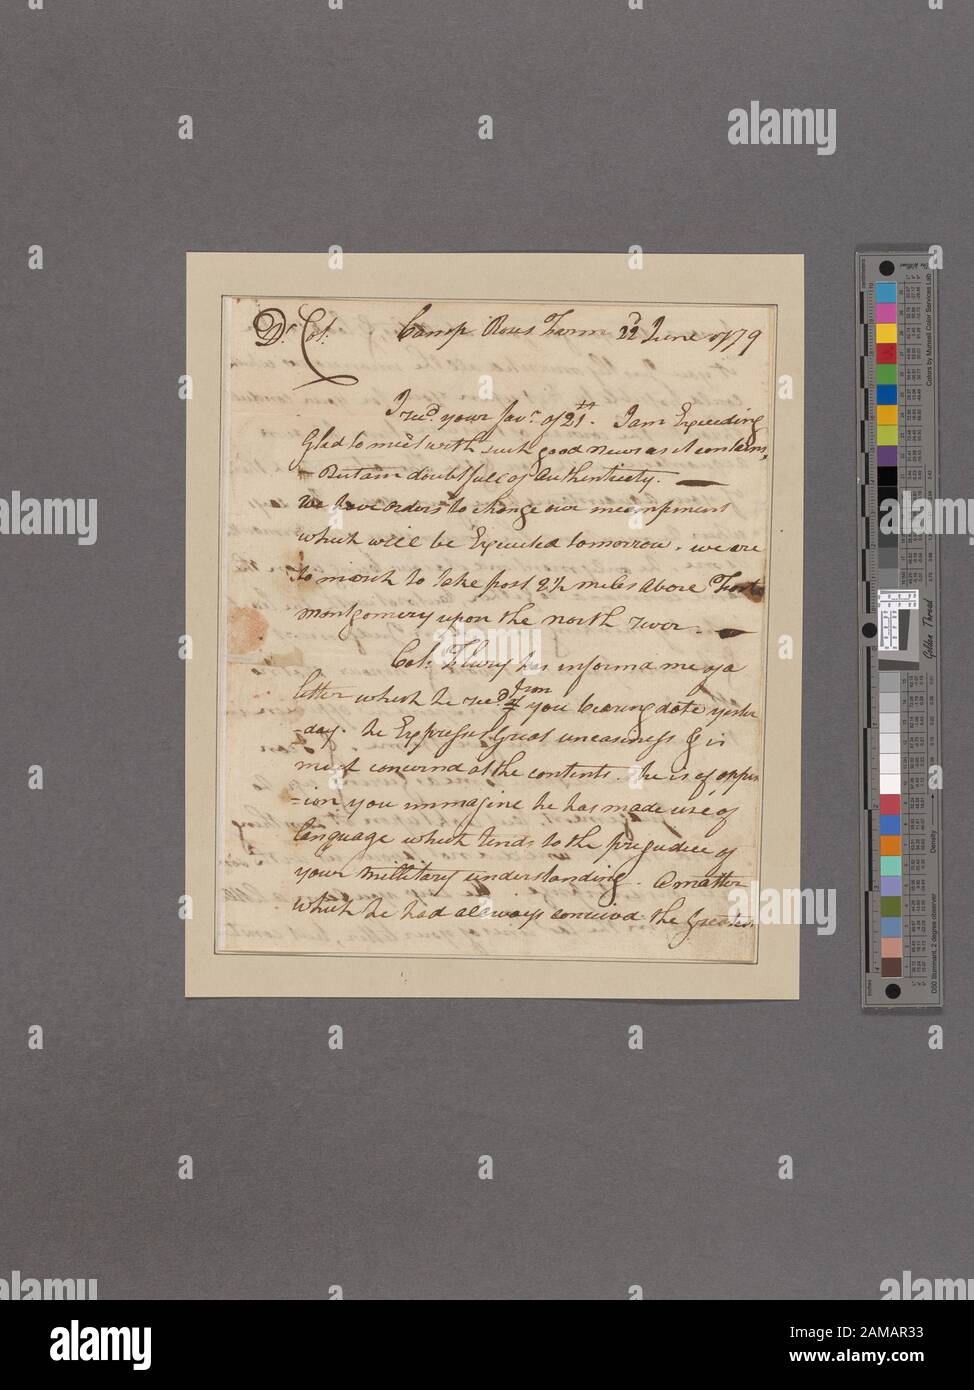 Dr. Col. Camp Rows Farm 22d June 1779
I recd. your favr. of 21st. I am Exeeding
Glad to meet with such good news as it contains,
- But am doubtfull of authenticety. —
We have orders to change our incampment
which will be Executed tomorrow. we are
to march to take post 2½ miles above Fort
montgomery upon the north river. —
Col. Flury has informd me of a
letter which he recd from you bearing date yester
-day. he Expresses Great uneasiness & is
much concirnd at the contents. he is of oppin
-ion you immagine he has made use of
language which tends to the prejudice of
your millitary understanding. A matter
which he had allways concivd the Greatest
alamy
alamy stock photo
2AMAR33
www.alamy.com